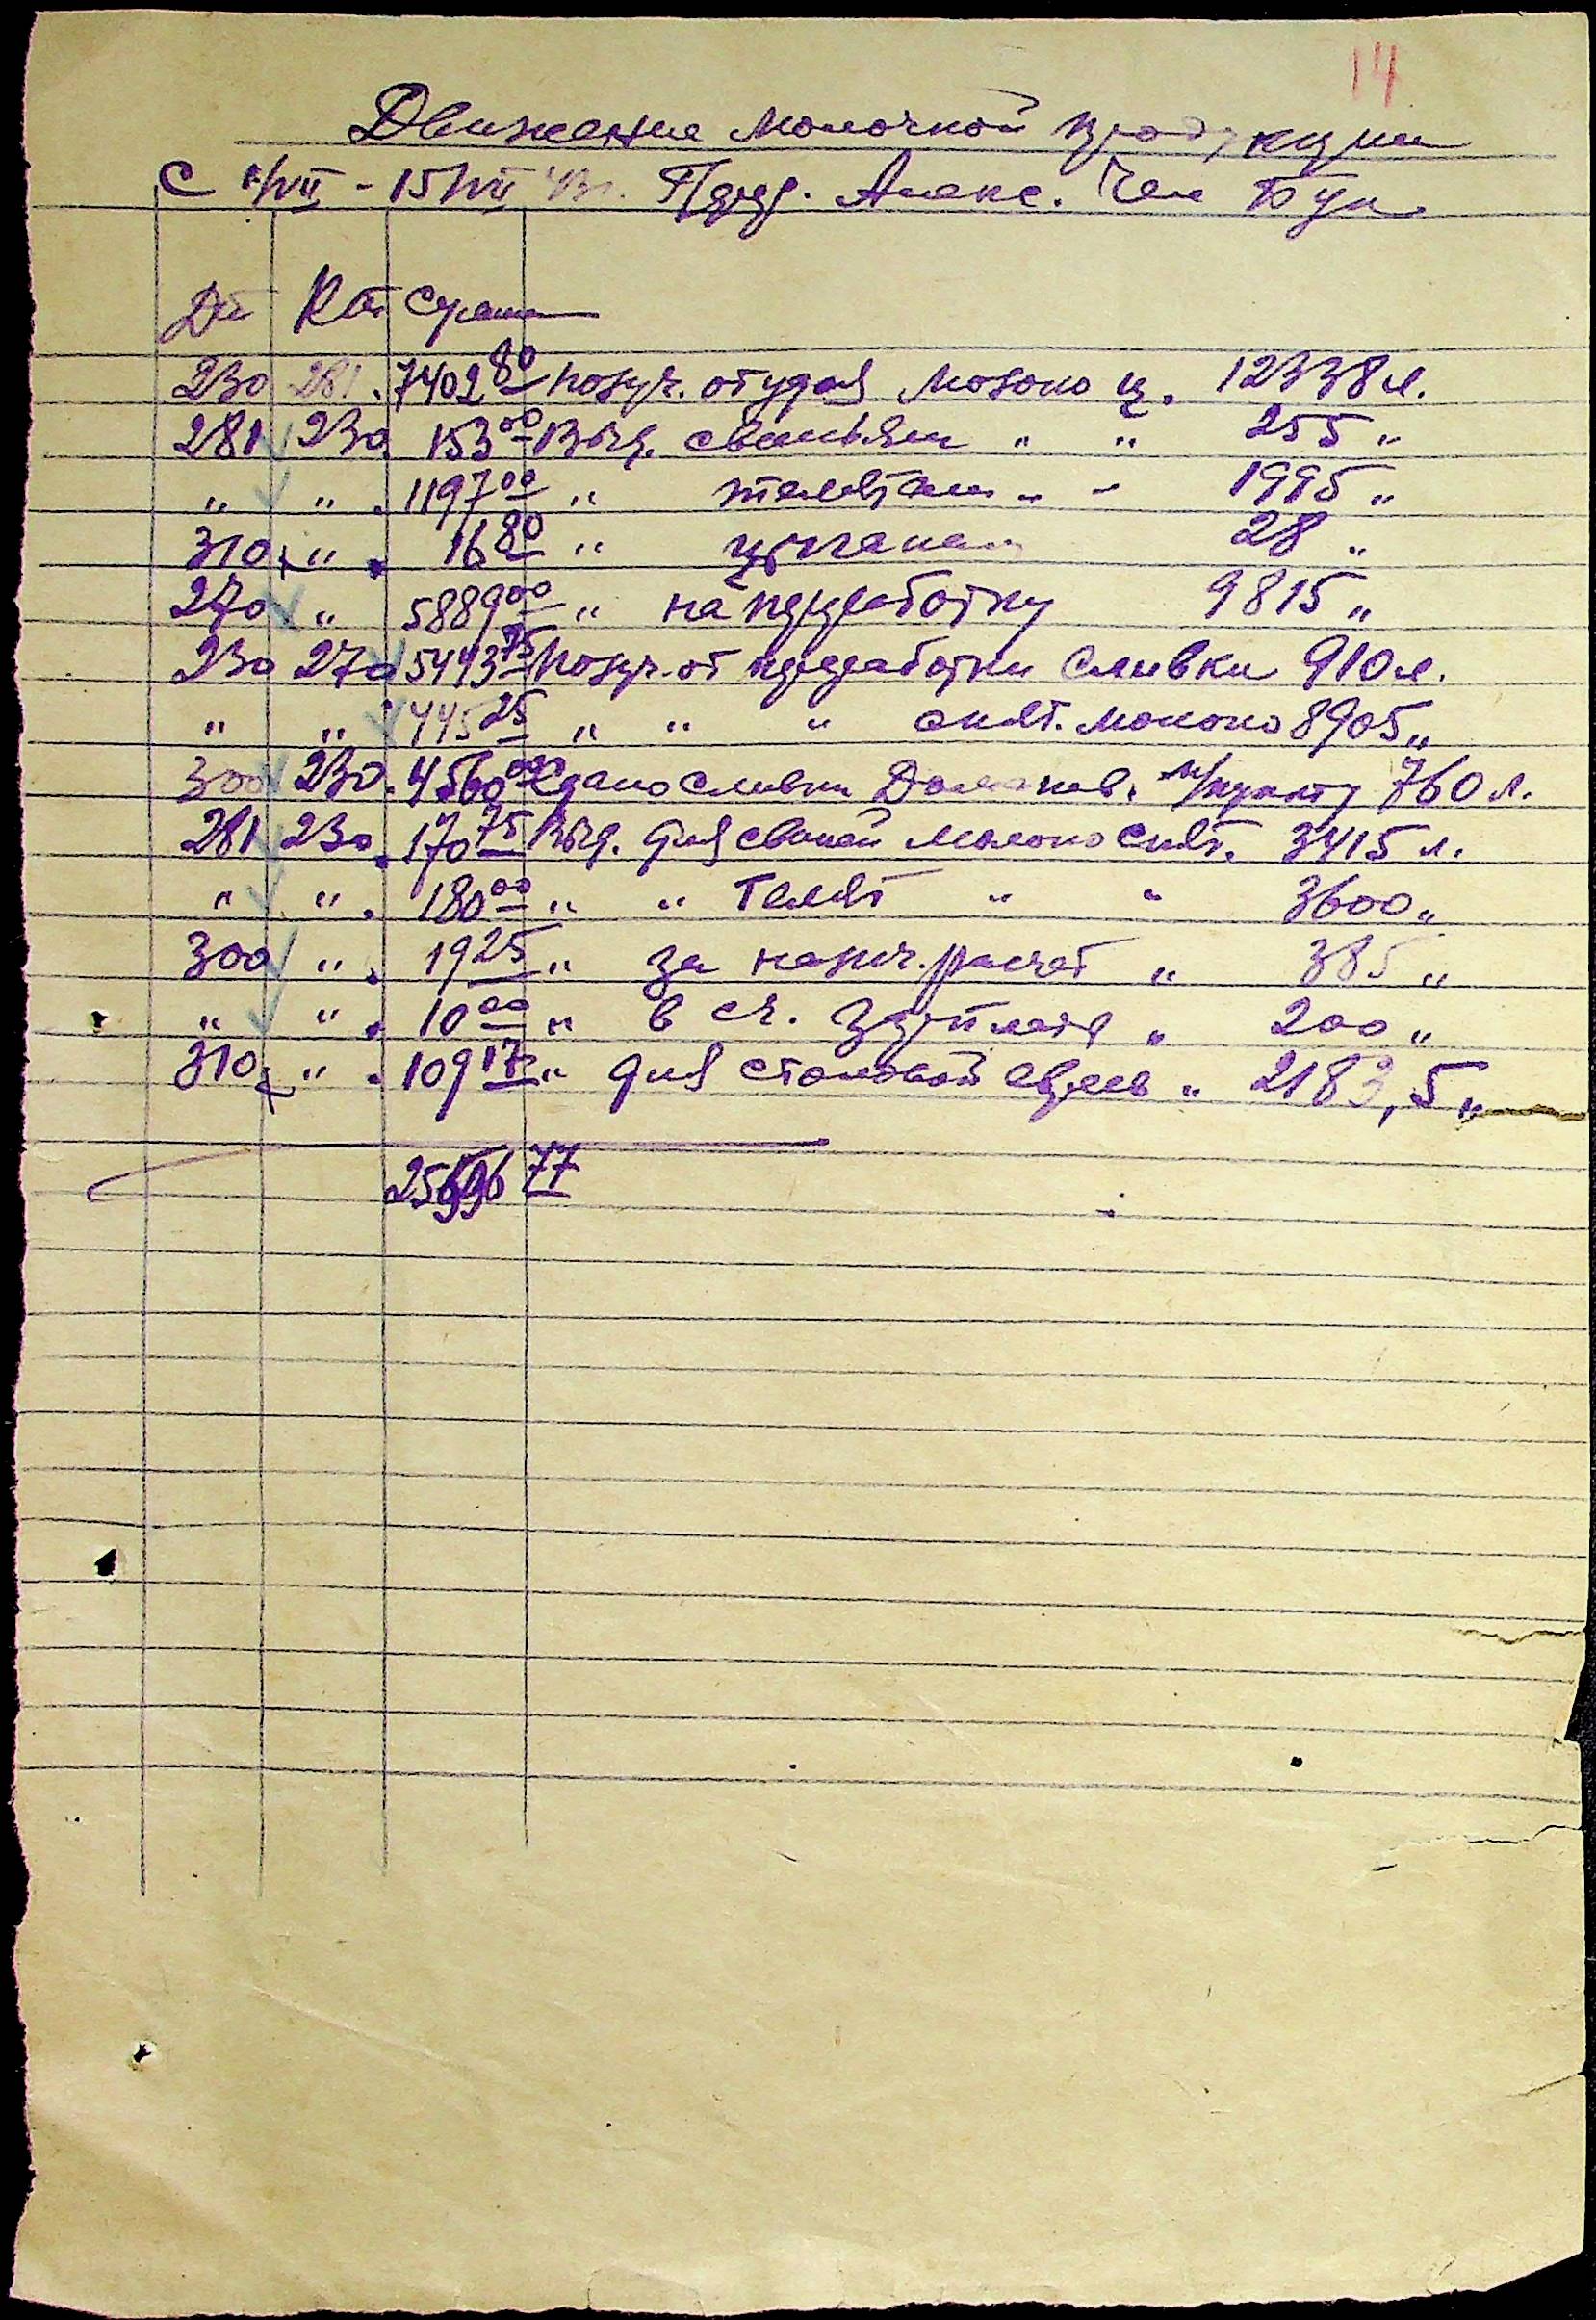 14
Движение молочной продукции
С 1/VII - 15/VII Алекс.
Дт Кт Сумма
230 281. 7402 80 Получ. от удоя молоко ц. 12338 л.
281 230 153 00 Выд. свиньям " " 255 "
" " . 1197 00 " телятам " " 1995 "
310 " . 16 80 " 28 "
270 " 5889 00 " на переработку 9815 "
230 270 5443 75 Получ. от переработки сливки 910 л.
" " 445 25 " " " снят. молоко 8905 "
300 230. 4560 00 Сдано сливки Доманев. м/пункту 760 л.
281 230. 170 75 Выд. для свиней молоко снят. 3415 л.
" " . 180 00 " " телят " " 3600 "
300 " . 19 25 " за налич. расчет " 385 "
" " . 10 00 " в сч. зарплаты " 200 "
310 " . 109 17 " для столовой евреев " 2183,5 "
77